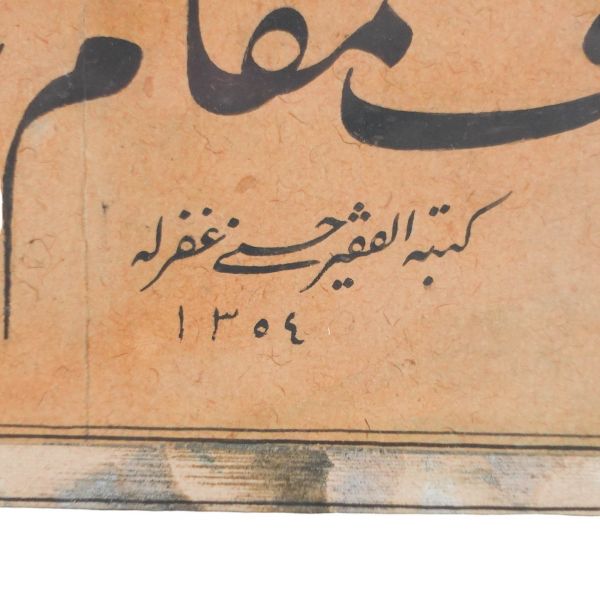 مقام
كتبه الفقير حسني غفرله
١٣٥٤